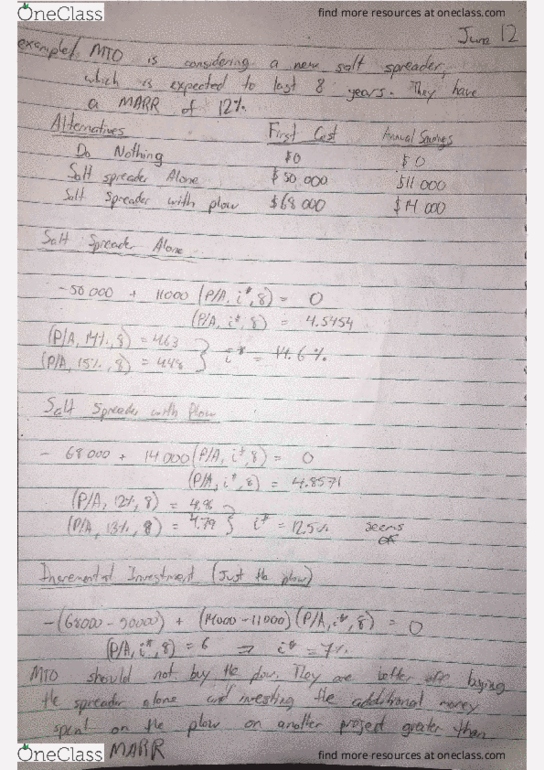 OneClass
find more resources at oneclass.com
June 12
example/ MTO is considering a new salt spreader,
which is expected to last 8 years. They have
a MARR of 12%.
Alternatives First Cost Annual Savings
Do Nothing $0 $0
Salt spreader Alone $50 000 $11 000
Salt spreader with plow $68 000 $14 000
Salt Spreader Alone
-50 000 + 11000 (P/A, i*, 8) = 0
(P/A, i*, 8) = 4.5454
(P/A, 14%, 8) = 4.63
(P/A, 15%, 8) = 4.48 } i* = 14.6%
Salt Spreader with Plow
- 68 000 + 14 000 (P/A, i*, 8) = 0
(P/A, i*, 8) = 4.8571
(P/A, 12%, 8) = 4.96
(P/A, 13%, 8) = 4.79 } i* = 12.5% seems
Incremental Investment (Just the plow)
-(68000 - 50000) + (14000 - 11000) (P/A, i*, 8) = 0
(P/A, i*, 8) = 6 ⇒ i* = 7%
MTO should not buy the plow. They are better off buying
the spreader alone and investing the additional money
spent on the plow on another project greater than
MARR
OneClass
find more resources at oneclass.com